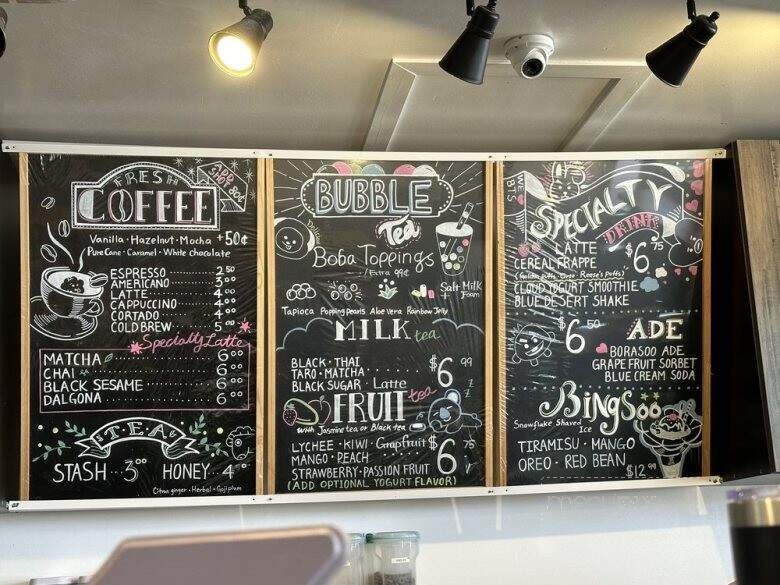 FRESH
COFFEE
Vanilla · Hazelnut · Mocha +50¢
Pure Cane · Caramel · White chocolate
ESPRESSO 2 50
AMERICANO 3 00
LATTE 4 00
CAPPUCCINO 4 00
CORTADO 4 00
COLD BREW 5 00
Specialty Latte
MATCHA 6 00
CHAI 6 00
BLACK SESAME 6 00
DALGONA 6 00
TEA
STASH 3 00 HONEY 4 00
Citron ginger · Herbal · Goji plum
BUBBLE
Tea
Boba Toppings
/Extra 99¢
Salt Milk
Foam
Tapioca Popping Pearls Aloe Vera Rainbow Jelly
MILK tea
BLACK · THAI
TARO · MATCHA
BLACK SUGAR · Latte
$6 99
FRUIT tea
with Jasmine tea or Black tea
LYCHEE · KIWI · Grapefruit
MANGO · PEACH
STRAWBERRY · PASSION FRUIT
$6 75
(ADD OPTIONAL YOGURT FLAVOR)
WE
BTS
SPECIALTY
DRINKS
LATTE
CEREAL FRAPPE
$6 75
CLOUD YOGURT SMOOTHIE
BLUE DESERT SHAKE
$6 50
ADE
BORASOO ADE
GRAPE FRUIT SORBET
BLUE CREAM SODA
BingSoo
Snowflake Shaved
Ice
TIRAMISU · MANGO
OREO · RED BEAN
$12 99